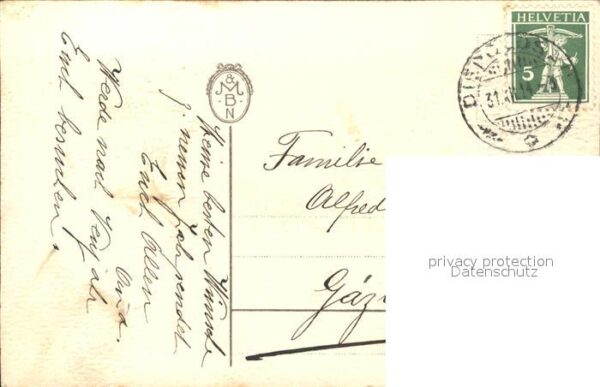 HELVETIA
5
M & B N
Meine besten Wünsche
z. neuen Jahr sendet
Euch Allen
Werde nach Neujahr
Euch besuchen.
Familie
Alfred
Gáz
privacy protection
Datenschutz